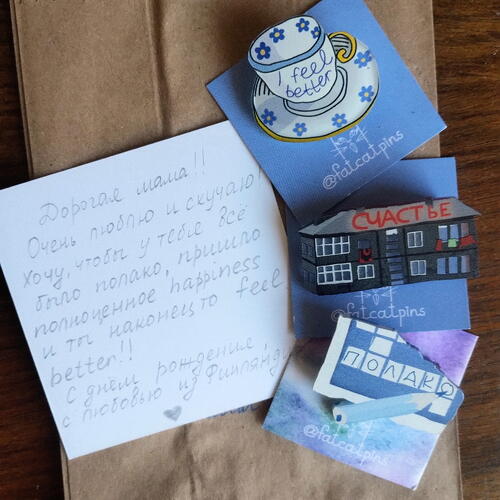 Дорогая мама!!
Очень люблю и скучаю!
Хочу, чтобы у тебя всё
было полако, пришло
полноценное happiness
и ты наконец то feel
better!!
С днём рождения,
с любовью из Финлянди
I feel
better
@fatcatpins
СЧАСТЬЕ
@fatcatpins
ПОЛАКО
@fatcatpins